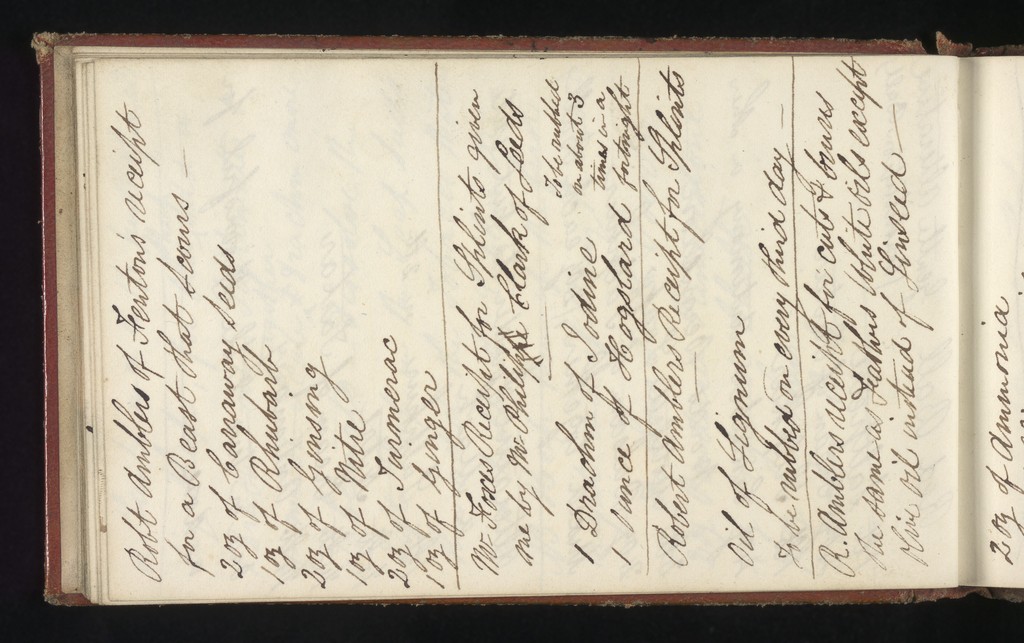 Robt Amblers of Fenton's receipt
for a Beast that Scours —
2oz of Carraway Seeds
1oz of Rhubarb
2oz of Ginsong
1oz of Nitre
2oz of Turmerac
1oz of Ginger
Mr Foxes Receipt for Splints given
me by Mr Philip Clark of Leeds
1 Drachm of Iodine
1 Ounce of Hogslard
To be rubbed
on about 3
times in a
fortnight
Robert Amblers Receipt for Splints
Oil of Lignum
To be rubbed on every third day —
R. Amblers receipt for cuts &
the same as Fathers white oils except
Olive oil instead of Linseed —
2oz of Ammonia